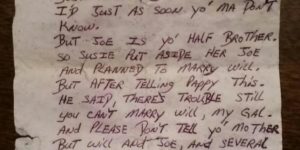 I'D JUST AS SOON YO' MA DON'T
KNOW.
BUT JOE IS YO' HALF BROTHER.
SO SUSIE PUT ASIDE HER JOE
AND PLANNED TO MARRY WILL.
BUT AFTER TELLING PAPPY THIS.
HE SAID, THERE'S TROUBLE STILL
YOU CAN'T MARRY WILL, MY GAL.
AND PLEASE DON'T TELL YO' MOTHER
BUT WILL AND JOE, AND SEVERAL